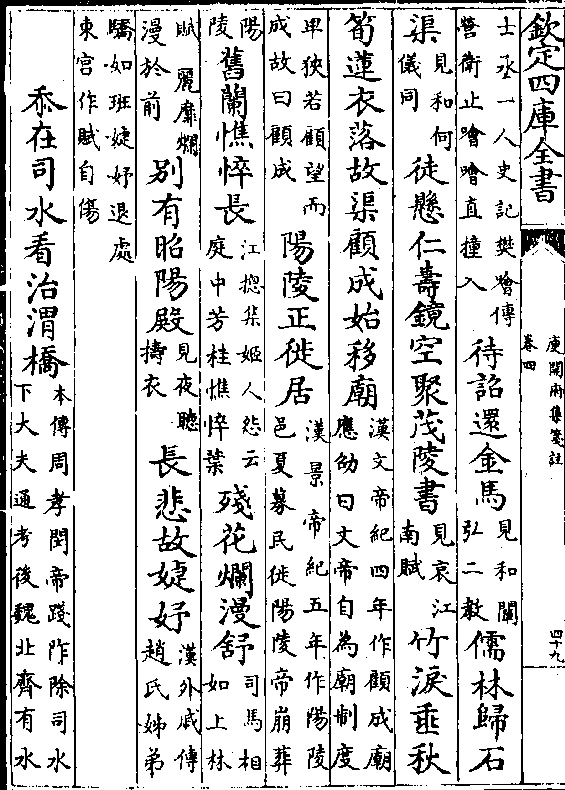 欽定四庫全書
庾開府集箋註
卷四
四十九
士丞一人史記樊噲傳
營衛止噲噲直撞入
待詔還金馬
見和闡
弘二教
儒林歸石
渠
見和何
儀同
徒懸仁壽鏡空聚茂陵書
見哀江
南賦
竹淚垂秋
筍蓮衣落故渠顧成始移廟
漢文帝紀四年作顧成廟
應劭曰文帝自為廟制度
卑狹若顧望而
成故曰顧成
陽陵正徙居
漢景帝紀五年作陽陵
邑夏募民徙陽陵帝崩葬
陽
陵
舊蘭憔悴長
江揔集姬人怨云
庭中芳桂憔悴葉
殘花爛漫舒
司馬相
如上林
賦麗靡爛
漫於前
別有昭陽殿
見夜聽
擣衣
長悲故婕妤
漢外戚傳
趙氏姊弟
驕如班婕妤退處
東宮作賦自傷
忝在司水看治渭橋
本傳周孝閔帝踐阼除司水
下大夫通考後魏北齊有水